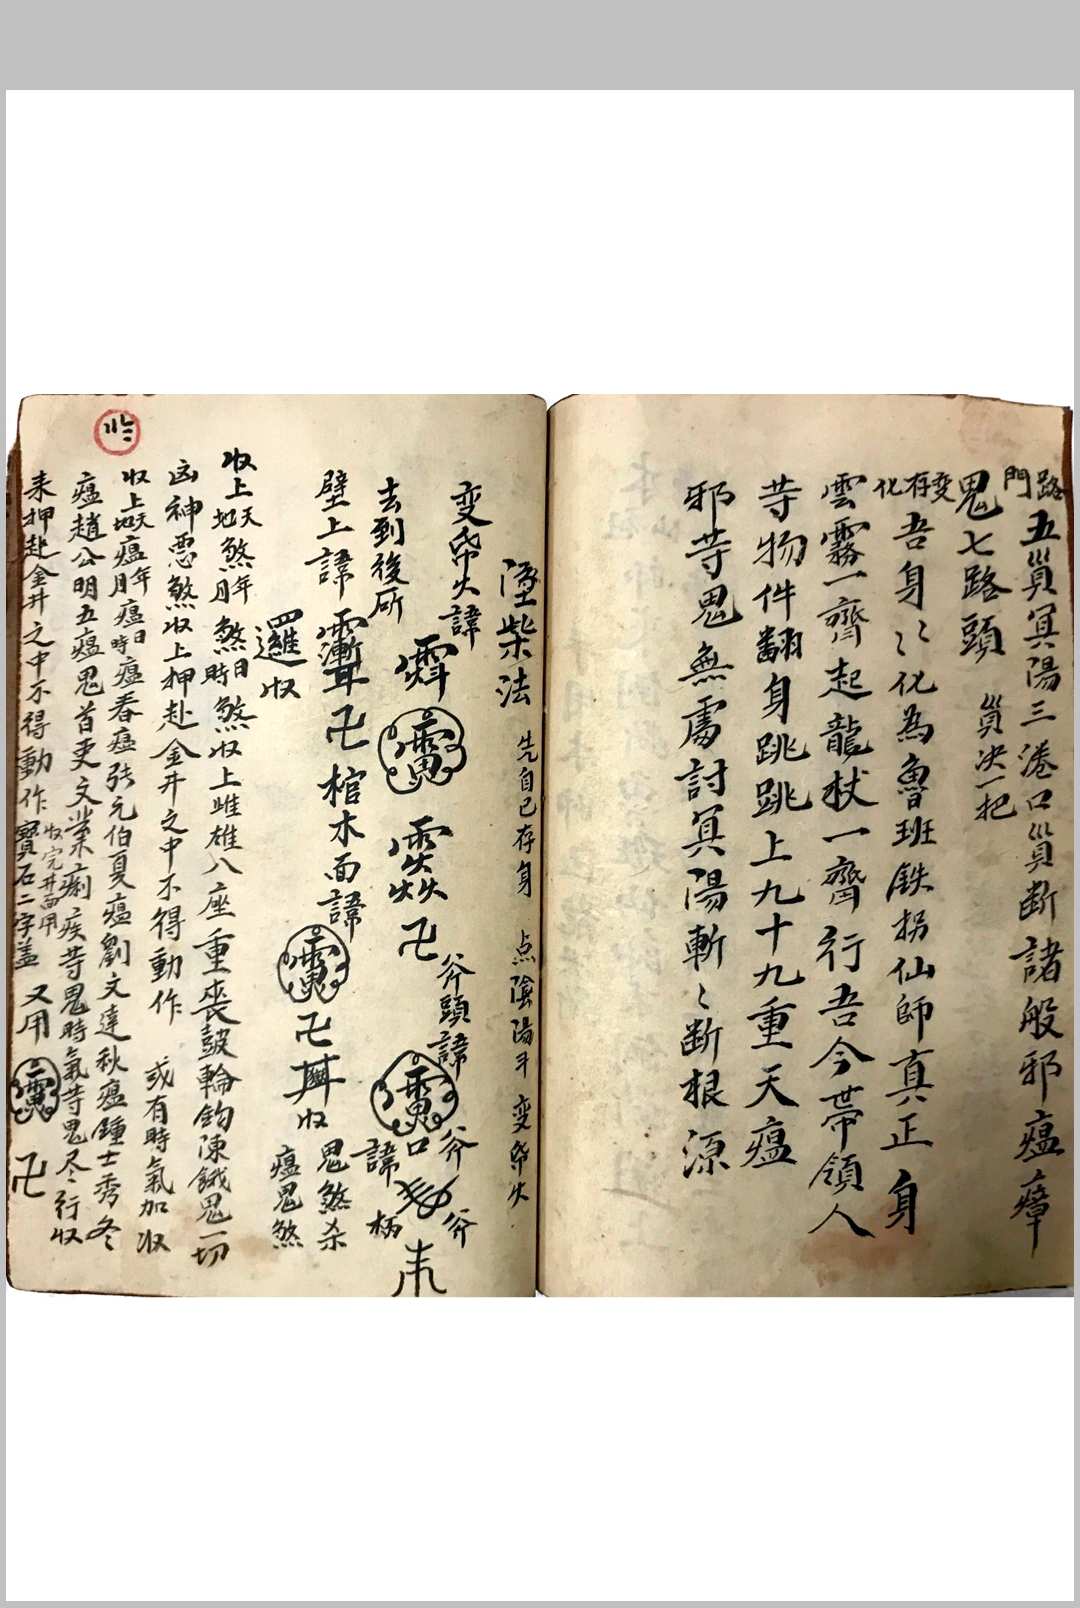 路門五 冥陽三港口 断諸般邪瘟瘴
鬼七路頭 决一把
变存化吾身〻化為魯班鉄拐仙師真正身
雲霧一齊起龍杖一齊行吾今帶領人
等物件翻身跳跳上九十九重天瘟
邪等鬼無處討冥陽斬〻断根源
柴法 先自己存身 点陰陽斗 变 火
变 火諱 斧頭諱 斧 斧
去到後所 卍 口 諱 柄
壁上諱 卍 棺木面諱 卍 收 鬼煞杀
邏收 瘟鬼煞
收上天地煞年月煞日時煞收上雌雄八座重喪鼓輪鈎陳餓鬼一切
凶神悪煞收上押赴金井之中不得動作 或有時氣加收
收上天地瘟年月瘟日時瘟春瘟張元伯夏瘟劉文達秋瘟鍾士秀冬
瘟趙公明五瘟鬼首吏文業痢疾等鬼時氣等鬼尽行收
来押赴金井之中不得動作 收完井面用 寶石二字盖 又用 卍